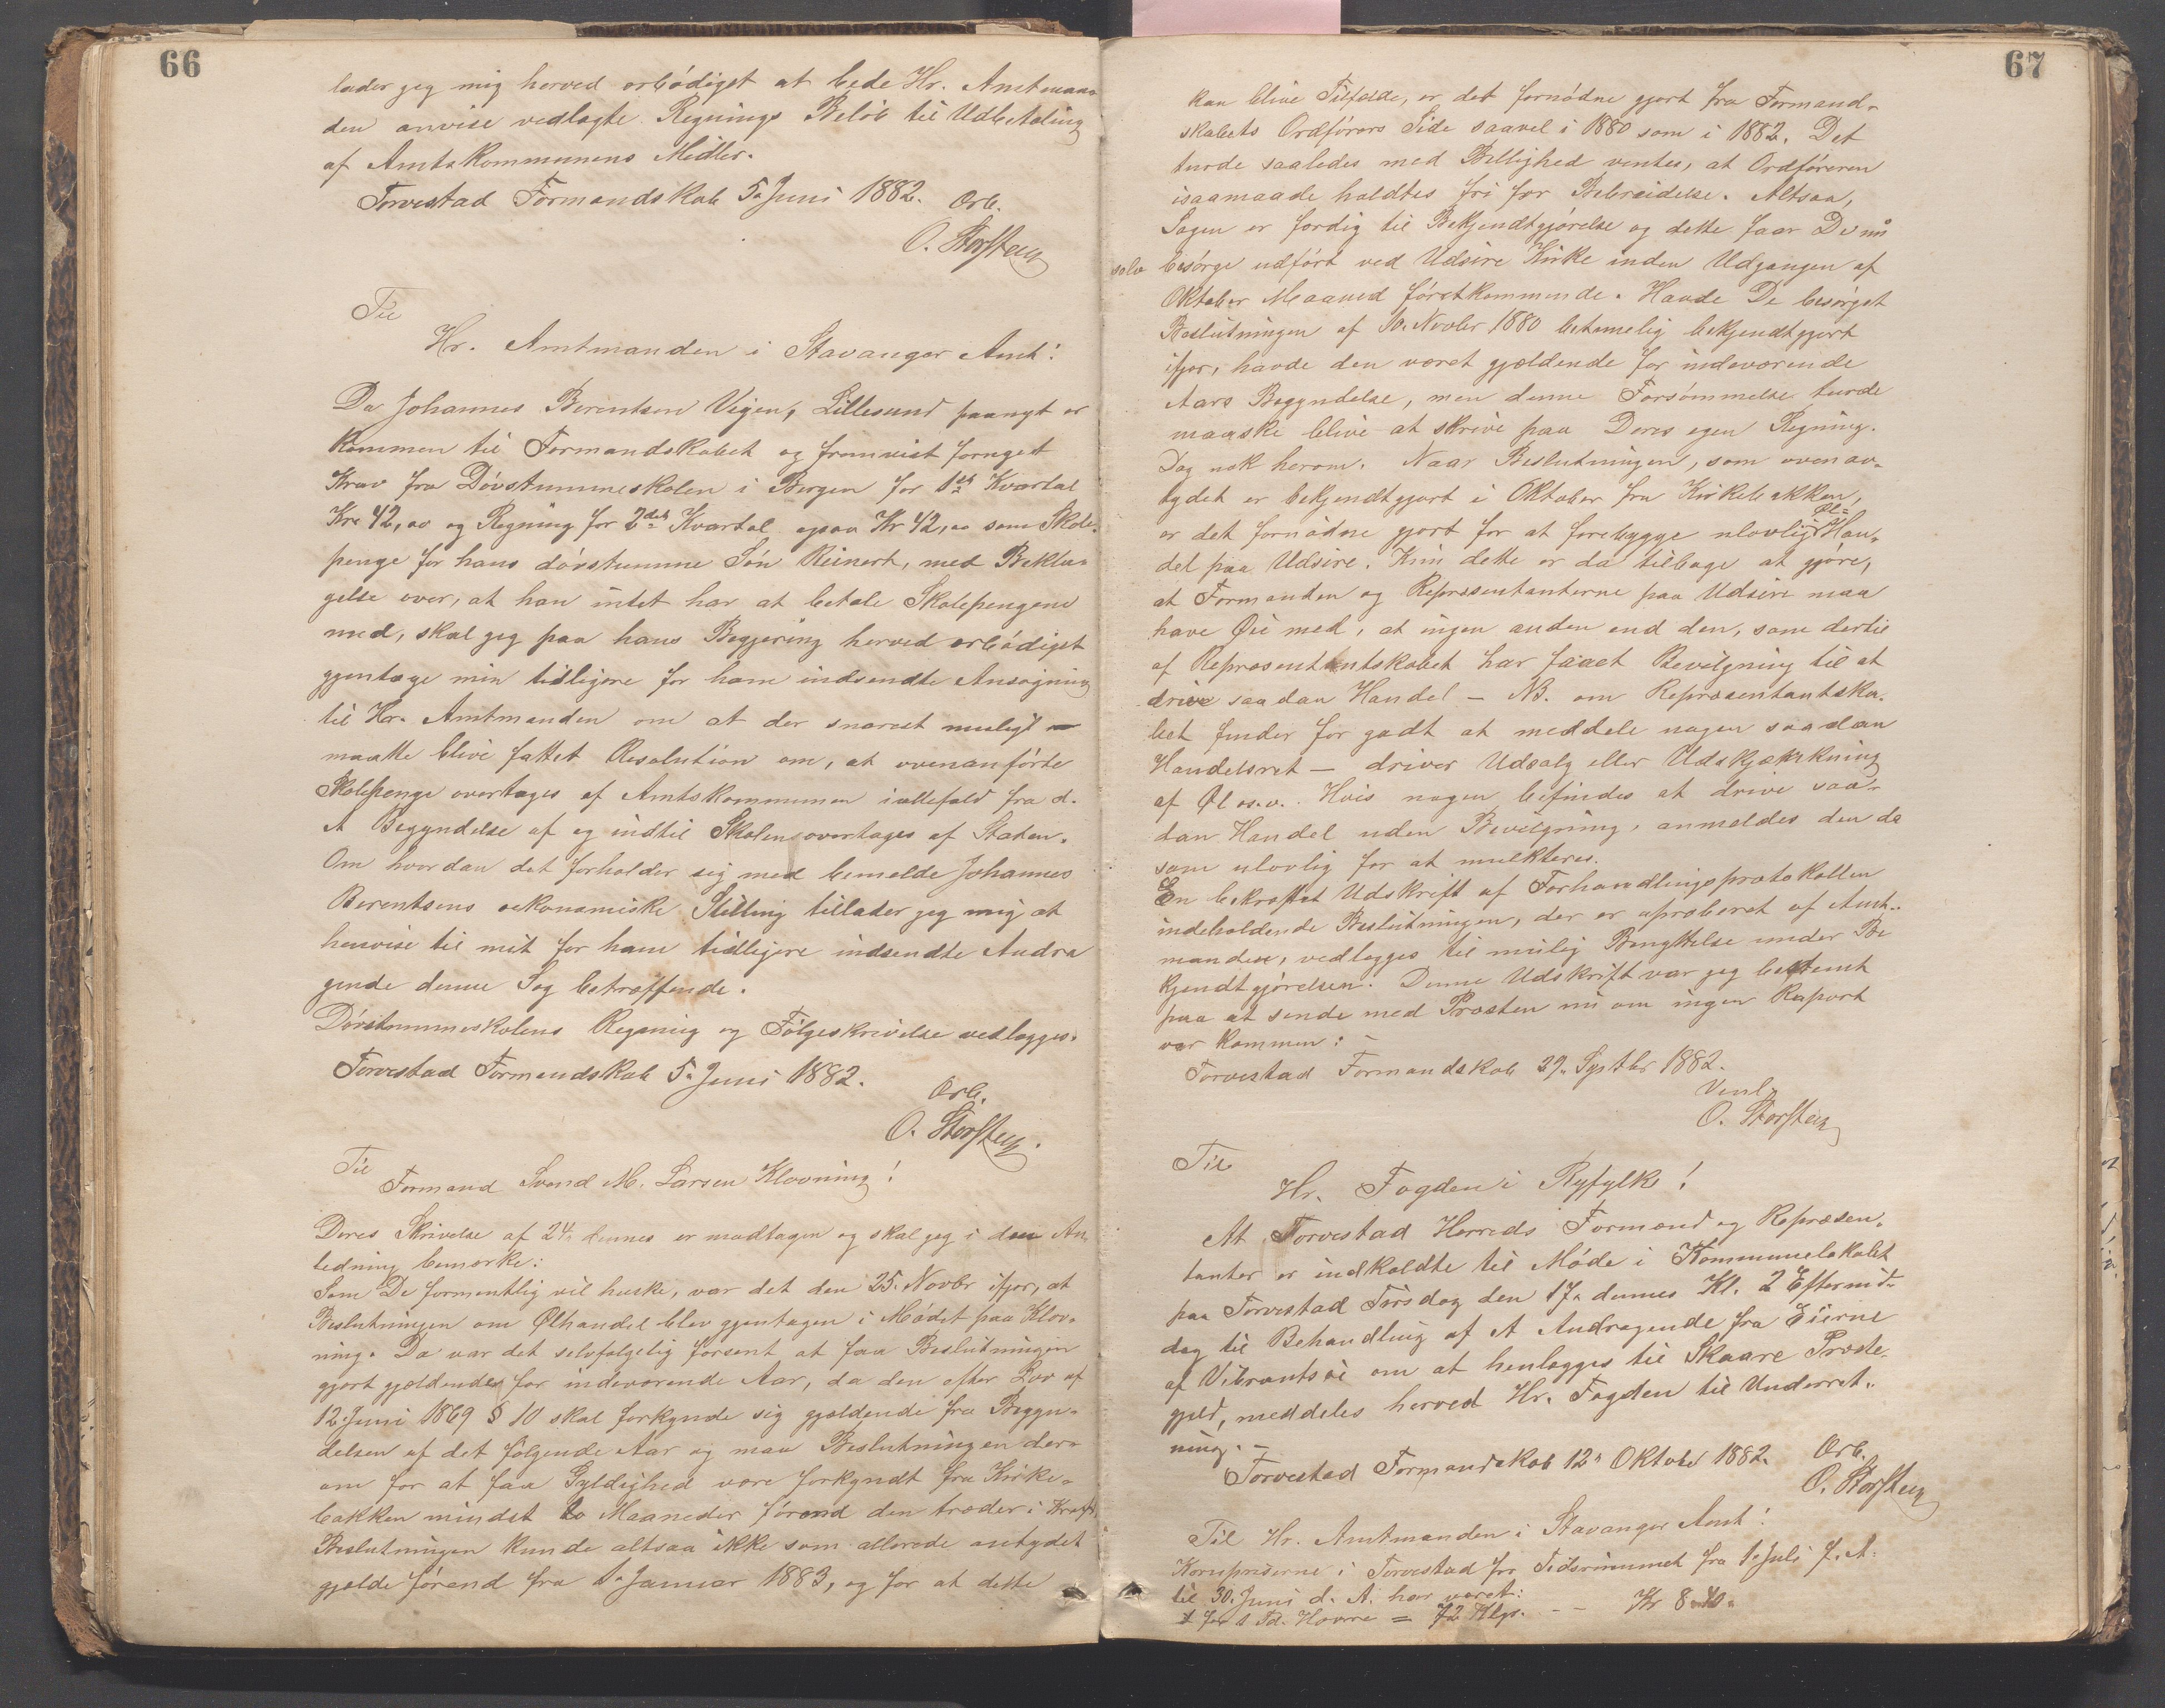 66
lader jeg mig herved ærbødigst at bede Hr. Amtman-
den anvise vedlagte Regnings Beløb til Udbetaling
af Amtskommunens Midler.
Torvestad Formandskab 5. Juni 1882. Ærb.
O. Storsteen
Til
Hr. Amtmanden i Stavanger Amt!
Da Johannes Berentsen Vigen, Lillesund paanyt er
kommen til Formandskabet og fremvist fornyet
Krav fra Døvstummeskolen i Bergen for 1ste Kvartal
Kr. 42,00 og Regning for 2det Kvartal ogsaa Kr 42,00 som Skole-
penge for hans døvstumme Søn Reinert, med Bekla-
gelse over, at han intet har at betale Skolepengene
med, skal jeg paa hans Begjering herved ærbødigst
gjentage min tidligere for ham indsendte Ansøgning
til Hr. Amtmanden om at der snarest muligt
maatte blive fattet Resolution om, at ovenanførte
Skolepenge overtages af Amtskommunen iallefald fra d.
A Begyndelse af og indtil Skolen overtages af Staten.
Om hvordan det forholder sig med bemeldte Johannes
Berentsens oekonomiske Stilling tillader jeg mig at
henvise til mit for ham tidligere indsendte Andra
gende denne Sag betræffende.
Døvstummeskolens Regning og Følgeskrivelse vedlægges.
Torvestad Formandskab 5. Juni 1882.
Ærb.
O. Storsteen.
Til
Formand Svend M. Larsen Klovning!
Deres Skrivelse af 24. dennes er modtagen og skal jeg i den An
ledning bemærke:
Som De formentlig vil huske, var det den 25. Novbr ifjor, at
Beslutningen om Ølhandel blev gjentagen i Mødet paa Klov-
ning. Da var det selvfølgelig forsent at faa Beslutningen
gjort gjældende for indeværende Aar, da den efter Lov af
12. Juni 1869 § 10 skal forkynde sig gjældende fra Begyn-
delsen af det følgende Aar og maa Beslutningen der-
om for at faa Gyldighed være forkyndt fra Kirke-
bakken mindst to Maaneder førend den træder i Kraft.
Beslutningen kunde altsaa ikke som allerede antydet
gjælde førend fra 1. Januar 1883, og for at dette
67
kan blive Tilfælde, er det fornødne gjort fra Formand-
skabets Ordførers Side saavel i 1880 som i 1882. Det
turde saaledes med Billighed ventes, at Ordføreren
isaamaade holdtes fri for Bebreidelse. Altsaa,
Sagen er færdig til Bekjendtgjørelse og dette faar De nu
selv besørge udført ved Udsire Kirke inden Udgangen af
Oktober Maaned førstkommende. Havde De besørget
Beslutningen af 10. Novbr 1880 betimelig bekjendtgjort
ifjor, havde den været gjældende for indeværende
Aars Begyndelse, men denne Forsømmelse turde
maaske blive at skrive paa Deres egen Regning.
Dog nok herom. Naar Beslutningen, som ovenan-
tydet er bekjendtgjort i Oktober fra Kirkebakken,
er det fornødne gjort for at forebygge ulovlig Øl- Han-
del paa Udsire. Kun dette er da tilbage at gjøre,
at Formanden og Repræsentanterne paa Udsire maa
have Øie med, at ingen anden end den, som dertil
af Repræsentantskabet har faaet Bevilgning til at
drive saadan Handel - NB. om Repræsentantska-
bet finder for godt at meddele nogen saadan
Handelsret - driver Udsalg eller Udskjænkning
af Øl o.s.v. Hvis nogen befindes at drive saa-
dan Handel uden Bevilgning, anmeldes den da
som ulovlig for at mulkteres.
En bekræftet Udskrift af Forhandlingsprotokollen
indeholdende Beslutningen, der er aproberet af Amt-
manden, vedlægges til mulig Benyttelse under Be
kjendtgjørelsen. Denne Udskrift var jeg bestemt
paa at sende med Præsten nu om ingen Raport
var kommen: -
Torvestad Formandskab 29. Septbr 1882.
Venl.
O. Storsteen
Til
Hr. Fogden i Ryfylke!
At Torvestad Herreds Formænd og Repræsen-
tanter er indkaldte til Møde i Kommunelokalet
paa Torvestad Tirsdag den 17. dennes Kl. 2 Eftermid-
dag til Behandling af et Andragende fra Eierne
af Vibrantsøi om at henlægges til Skaare Præste-
gjeld, meddeles herved Hr. Fogden til Underret-
ning. -
Torvestad Formandskab 12. Oktober 1882. Ærb.
O. Storsteen
Til Hr. Amtmanden i Stavanger Amt!
Kornpriserne i Torvestad for Tidsrummet fra 1. Juli f. A.
til 30. Juni d. A. har været:
1 for 1 Td. Havre = 72 Klgr. - - Kr 8.40.